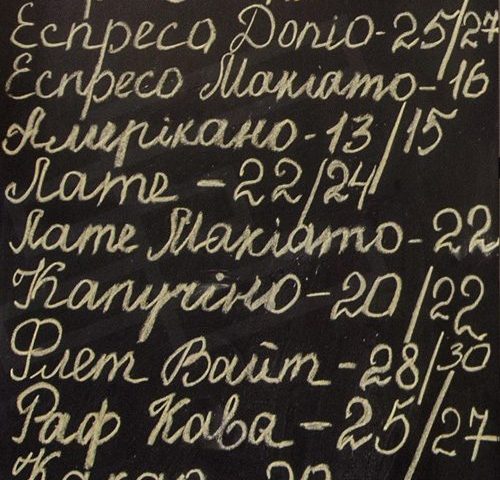 Еспресо Допіо - 25/27
Еспресо Макіато - 16
Амерікано - 13/15
Лате - 22/24
Лате Макіато - 22
Капучіно - 20/22
Флет Вайт - 28/30
Раф Кава - 25/27